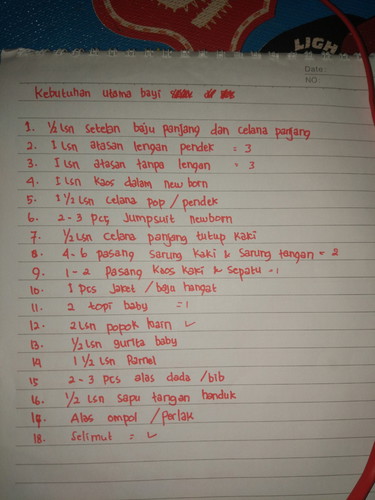 LIGH
Date:
NO
Kebutuhan utama bayi
1. 1/2 lsn setelan baju panjang dan celana panjang
2. 1 lsn atasan lengan pendek = 3
3. 1 lsn atasan tanpa lengan = 3
4. 1 lsn kaos dalam new born
5. 1 1/2 lsn celana pop / pendek
6. 2-3 pcs Jumpsuit newborn
7. 1/2 lsn celana panjang tutup kaki
8. 4-6 pasang sarung kaki & sarung tangan = 2
9. 1-2 Pasang kaos kaki & sepatu = 1
10. 1 pcs jaket / baju hangat
11. 2 topi baby = 1
12. 2 lsn popok kain ✓
13. 1/2 lsn gurita baby
14 1 1/2 lsn Bamol
15 2-3 pcs alas dada / bib
16. 1/2 lsn sapu tangan handuk
17. Alas ompol / perlak
18. Selimut = ✓